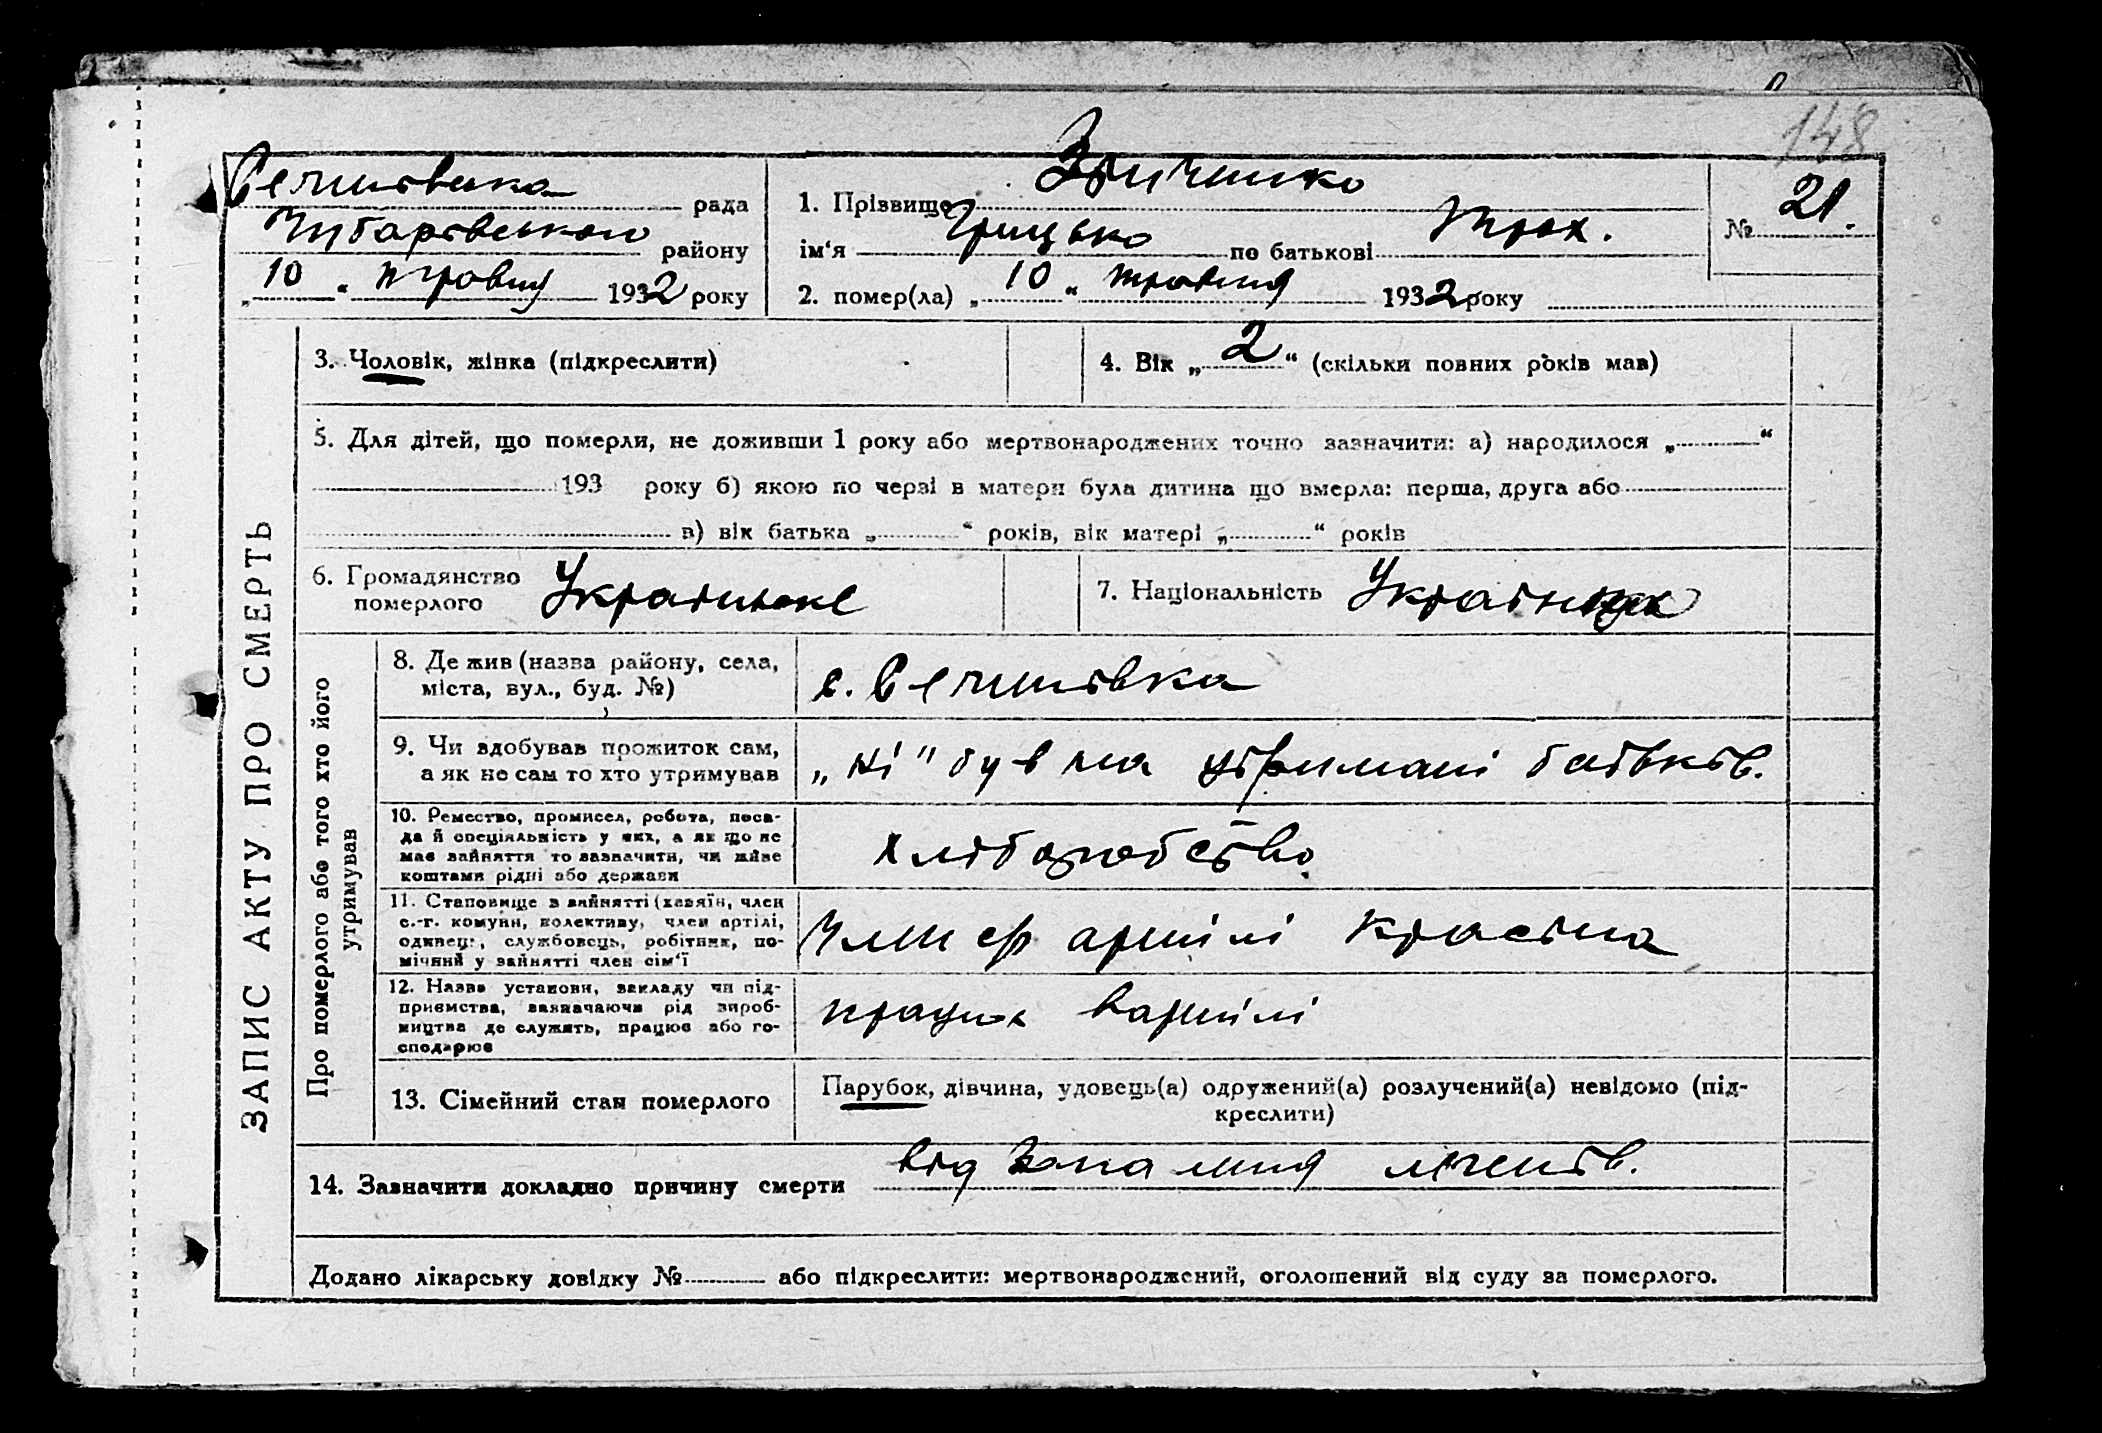 148
рада
Чубарівського району
„10“ травня 1932 року
1. Прізвище
ім‘я Грицько по батькові Трох.
№ 21.
2. помер(ла) „10“ травня 1932 року
ЗАПИС АКТУ ПРО СМЕРТЬ
3. Чоловік, жінка (підкреслити)
4. Вік „2“ (скільки повних років мав)
5. Для дітей, що померли, не доживши 1 року або мертвонароджених точно зазначити: а) народилося „ “
193 року б) якою по черзі в матери була дитина що вмерла: перша, друга або
в) вік батька „ “ років, вік матері „ “ років
6. Громадянство
померлого Українське
7. Національність Українець
Про померлого або того хто його
утримував
8. Де жив (назва району, села,
міста, вул., буд. №)
с.
9. Чи здобував прожиток сам,
а як не сам то хто утримував
„ні“ був на утримані батьків.
10. Ремество, промисел, робота, поса-
да й спеціяльність у яких, а як що не
має зайняття то зазначити, чи живе
коштами рідні або держави
хліборобство
11. Становище в зайнятті (хазяїн, член
с.-г. комуни, колективу, член артілі,
одинець, службовець, робітник, по-
мічний у зайнятті член сім‘ї
Член с/г артілі
12. Назва установи, закладу чи під-
приємства, зазначаючи рід вироб-
ництва де служить, працює або го-
сподарює
працює вартілі
13. Сімейний стан померлого
Парубок, дівчина, удовець(а) одружений(а) розлучений(а) невідомо (під-
креслити)
14. Зазначити докладно причину смерти від запалення легенів.
Додано лікарську довідку № або підкреслити: мертвонароджений, оголошений від суду за померлого.